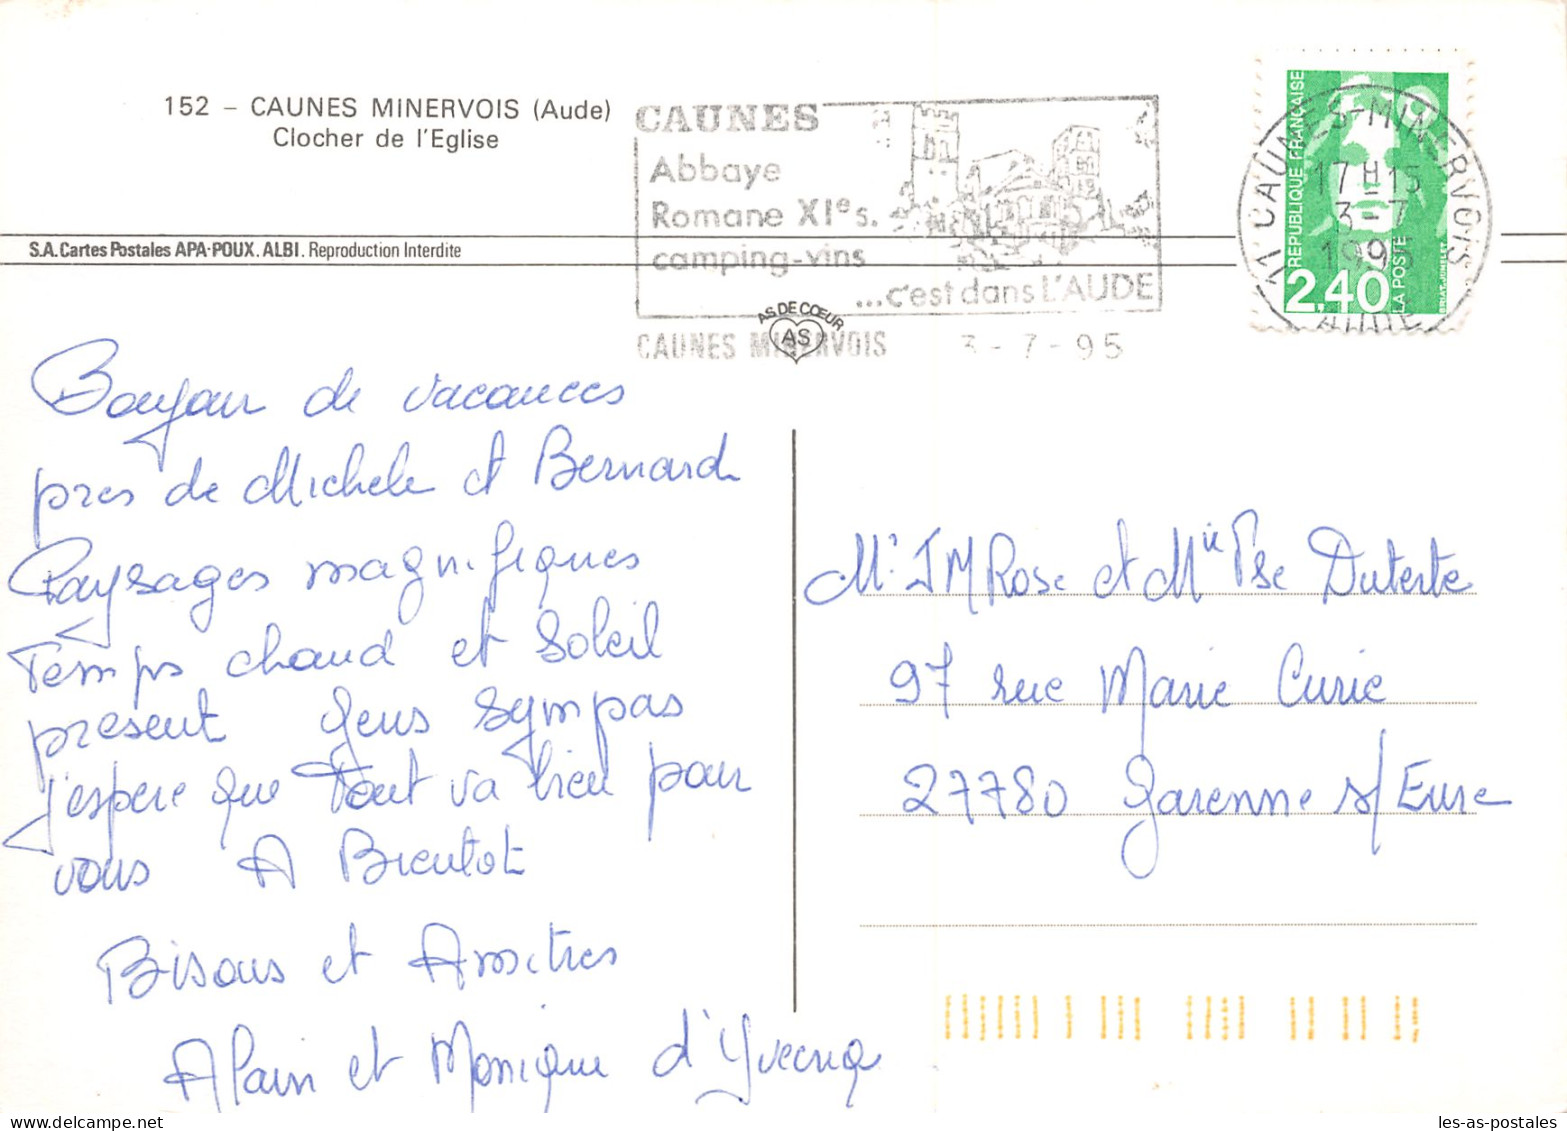 152 – CAUNES MINERVOIS (Aude)
Clocher de l'Eglise
S.A. Cartes Postales APA-POUX. ALBI. Reproduction Interdite
CAUNES
Abbaye
Romane XIe s.
camping-vins
...c'est dans L'AUDE
CAUNES MINERVOIS 3-7-95
AS DE CŒUR
AS
REPUBLIQUE FRANÇAISE
2,40
LA POSTE
CAUNES-MINERVOIS
17 H 15
3-7
199
AUDE
Bonjour de vacances
pres de Michele et Bernard
Paysages magnifiques
Temps chaud et Soleil
present Gens sympas
j'espere que Tout va bien pour
vous A Bientot
Bisous et Amitres
Alain et Monique d'
Mr JM Rose et Mlle Duterte
97 rue Marie Curie
27780 Garenne s/Eure
les-as-postales